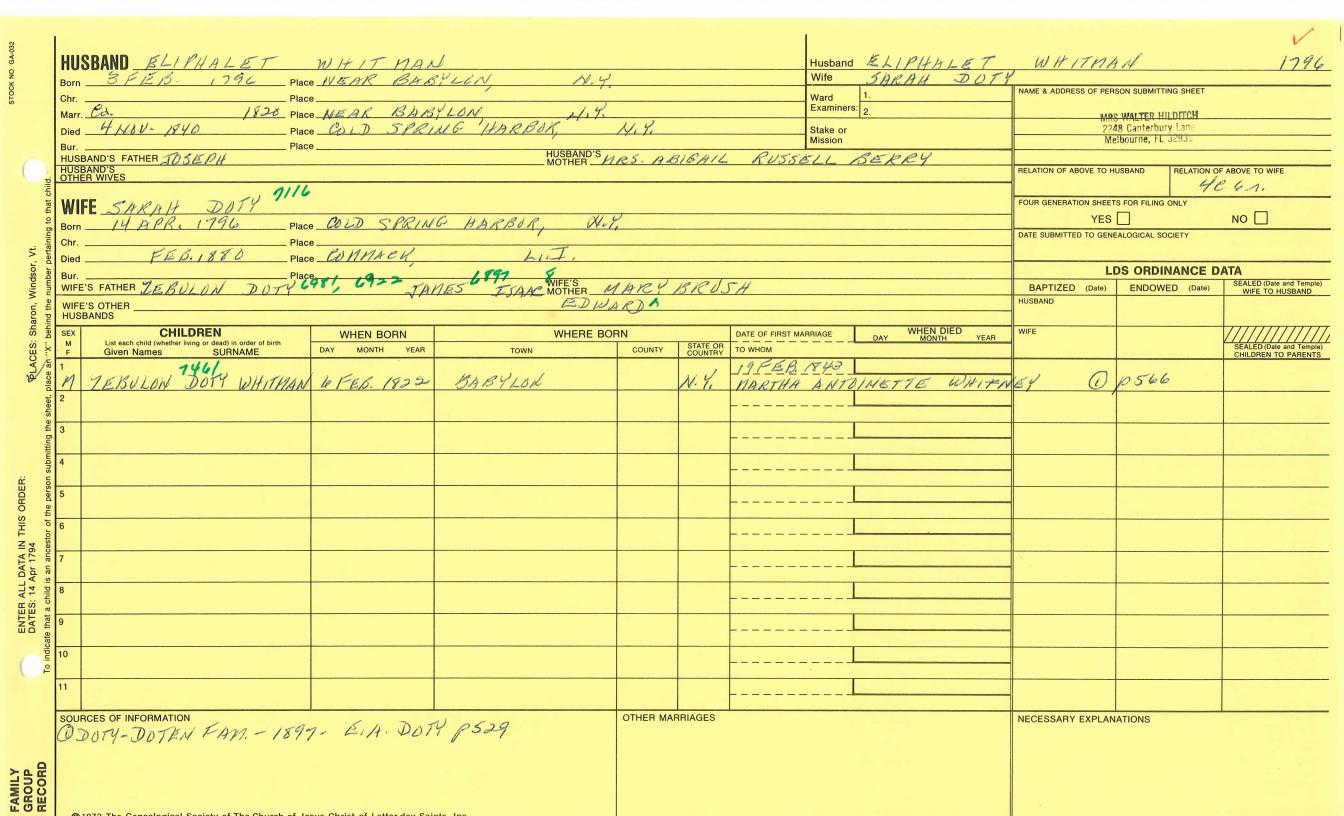 STOCK NO. GA-032
HUSBAND ELIPHALET WHITMAN
Born 3 FEB. 1796 Place NEAR BABYLON, N.Y.
Chr. Place
Marr. Ca. 1820 Place NEAR BABYLON, N.Y.
Died 4 NOV- 1840 Place COLD SPRING HARBOR, N.Y.
Bur. Place
HUSBAND'S FATHER JOSEPH HUSBAND'S MOTHER MRS. ABIGAIL RUSSELL BERRY
HUSBAND'S OTHER WIVES
7116
WIFE SARAH DOTY
Born 14 APR. 1796 Place COLD SPRING HARBOR, N.Y.
Chr. Place
Died FEB. 1880 Place COMMACK, L.I.
Bur. Place
WIFE'S FATHER ZEBULON DOTY 6981, 6922 JAMES 6897 ISAAC 8 WIFE'S MOTHER MARY BRUSH
EDWARD ^
WIFE'S OTHER HUSBANDS
Husband ELIPHALET WHITMAN 1796
Wife SARAH DOTY
Ward Examiners: 1.
2.
Stake or Mission
NAME & ADDRESS OF PERSON SUBMITTING SHEET
MRS WALTER HILDITCH
2248 Canterbury Lane
Melbourne, FL
RELATION OF ABOVE TO HUSBAND RELATION OF ABOVE TO WIFE
FOUR GENERATION SHEETS FOR FILING ONLY
YES NO
DATE SUBMITTED TO GENEALOGICAL SOCIETY
LDS ORDINANCE DATA
BAPTIZED (Date) ENDOWED (Date) SEALED (Date and Temple) WIFE TO HUSBAND
HUSBAND
WIFE
SEALED (Date and Temple) CHILDREN TO PARENTS
SEX M F CHILDREN
List each child (whether living or dead) in order of birth
Given Names SURNAME
WHEN BORN
DAY MONTH YEAR
WHERE BORN
TOWN COUNTY STATE OR COUNTRY
DATE OF FIRST MARRIAGE
TO WHOM
WHEN DIED
DAY MONTH YEAR
7461
1 19 FEB 1843
M ZEBULON DOTY WHITMAN 6 FEB. 1822 BABYLON N.Y. MARTHA ANTOINETTE WHITNEY ① p566
2
3
4
5
6
7
8
9
10
11
SOURCES OF INFORMATION
① DOTY-DOTEN FAM. - 1897- E.A. DOTY p529
OTHER MARRIAGES
NECESSARY EXPLANATIONS
ENTER ALL DATA IN THIS ORDER:
DATES: 14 Apr 1794
PLACES: Sharon, Windsor, Vt.
To indicate that a child is an ancestor of the person submitting the sheet, place an "X" behind the number pertaining to that child.
FAMILY
GROUP
RECORD